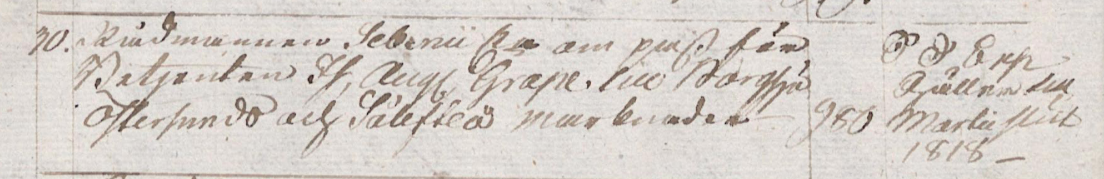 30. Rådmannen Sebenii    om pass för
Betjenten    Aug. Grape. till Borgsjö
Östersunds och        marknader
980
P S Exp
Gäller till
Martii slut
1818 –